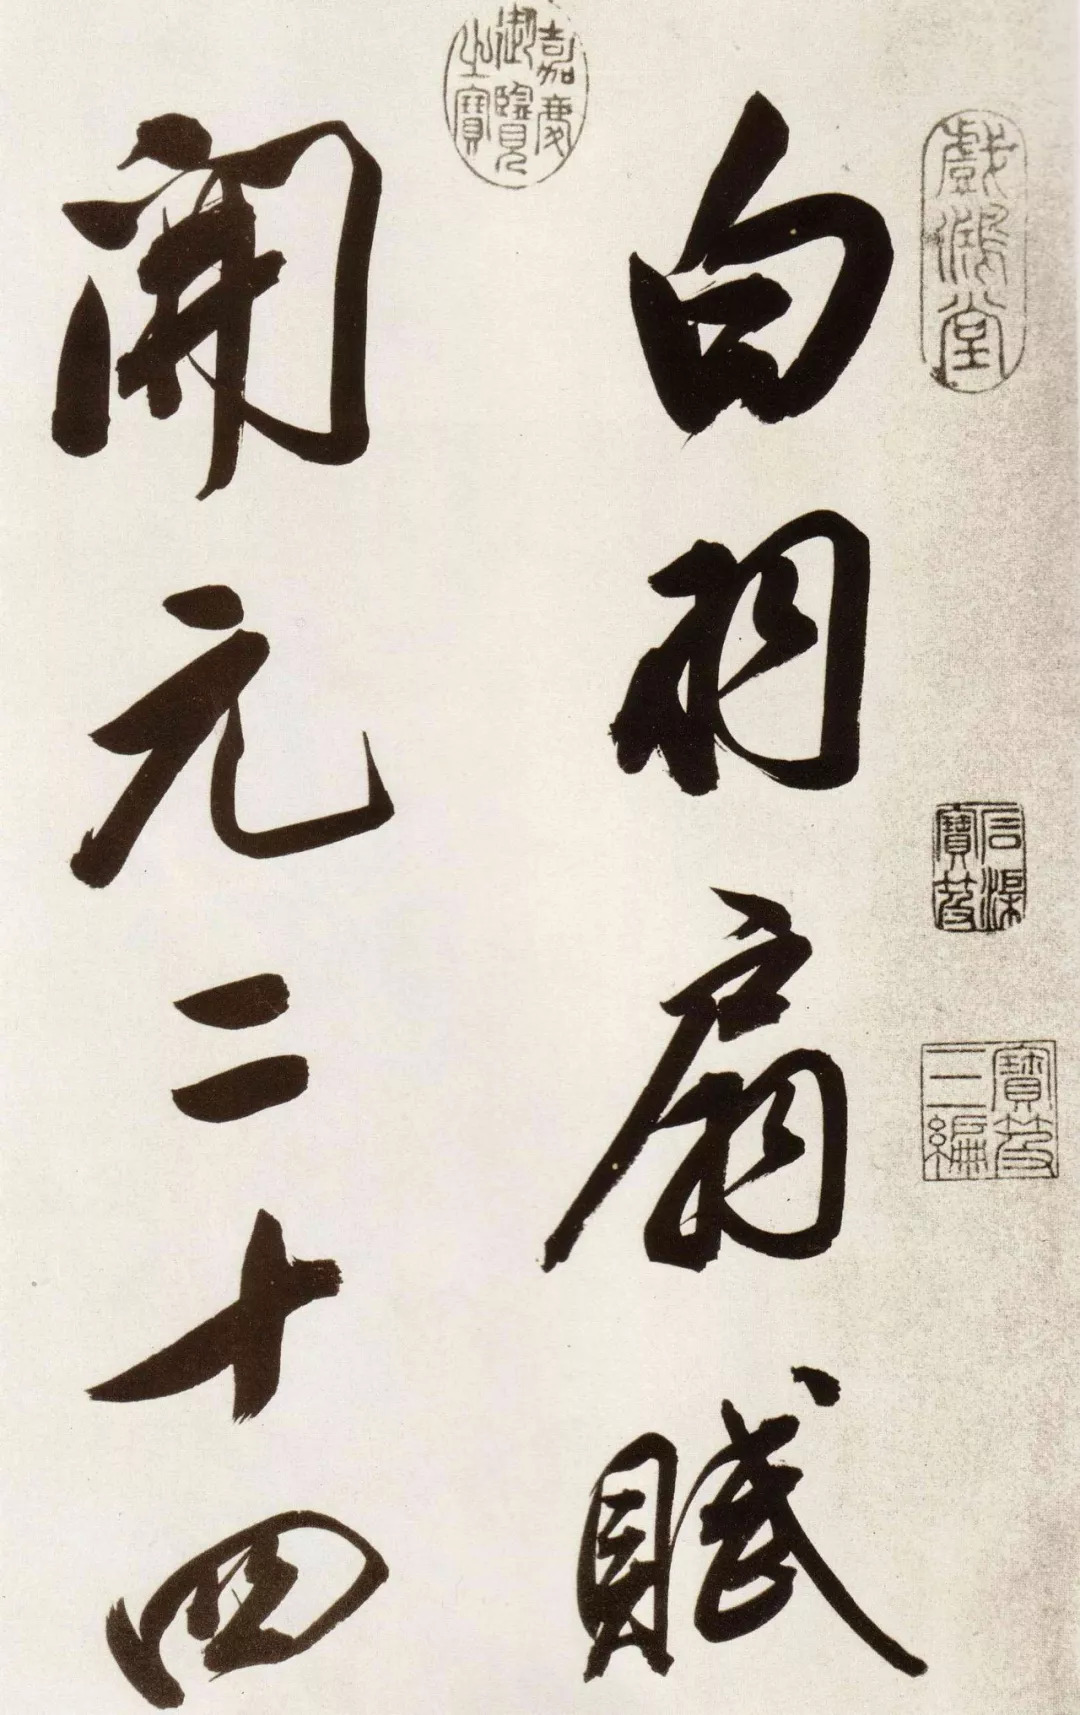 白羽扇賦
開元二十四
戲鴻堂
石渠寶笈
寶笈三編
嘉慶御覽之寶